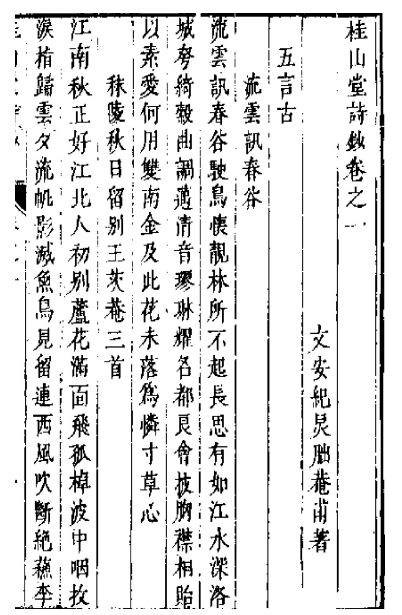 桂山堂詩鈔卷之一
文安紀炅朏菴甫著
五言古
流雲訊春谷
流雲訊春谷駛鳥懷靚林所不起長思有如江水深洛
城夸綺縠曲調邁清音璆琳耀名都良會披胸襟相貽
以素愛何用雙南金及此花未落爲憐寸草心
秣陵秋日留別王茨菴三首
江南秋正好江北人初別蘆花滿面飛孤棹波中咽抆
淚楷歸雲夕流帆影滅魚鳥見留連西風吹斷絶蘓李